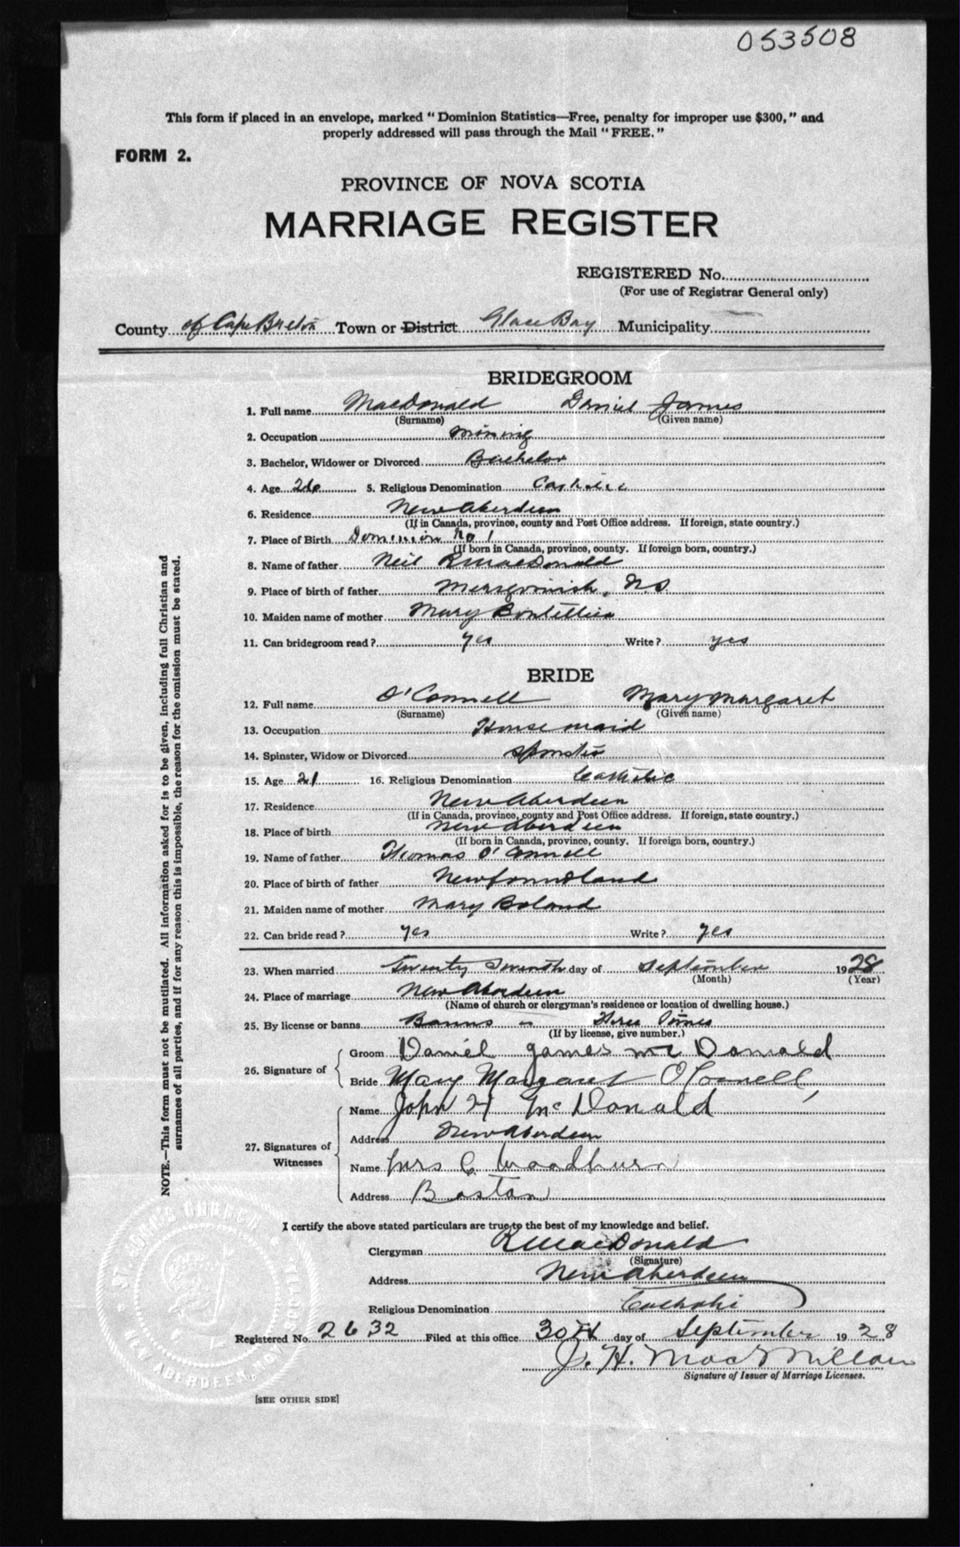 053508
This form if placed in an envelope, marked "Dominion Statistics—Free, penalty for improper use $300," and
properly addressed will pass through the Mail "FREE."
FORM 2.
PROVINCE OF NOVA SCOTIA
MARRIAGE REGISTER
REGISTERED No.
(For use of Registrar General only)
County of Cape Breton Town or District Glace Bay Municipality
BRIDEGROOM
1. Full name MacDonald Daniel James
(Surname) (Given name)
2. Occupation mining
3. Bachelor, Widower or Divorced Bachelor
4. Age 26 5. Religious Denomination Catholic
6. Residence New Aberdeen
(If in Canada, province, county and Post Office address. If foreign, state country.)
7. Place of Birth Dominion No 1
(If born in Canada, province, county. If foreign born, country.)
8. Name of father Neil R MacDonald
9. Place of birth of father NS
10. Maiden name of mother Mary
11. Can bridegroom read? yes Write? yes
BRIDE
12. Full name O'Connell Mary Margaret
(Surname) (Given name)
13. Occupation House maid
14. Spinster, Widow or Divorced Spinster
15. Age 21 16. Religious Denomination Catholic
17. Residence New Aberdeen
(If in Canada, province, county and Post Office address. If foreign, state country.)
18. Place of birth New Aberdeen
(If born in Canada, province, county. If foreign born, country.)
19. Name of father Thomas O'Connell
20. Place of birth of father Newfoundland
21. Maiden name of mother Mary Boland
22. Can bride read? yes Write? yes
23. When married Twenty Seventh day of September 1928
(Month) (Year)
24. Place of marriage New Aberdeen
(Name of church or clergyman's residence or location of dwelling house.)
25. By license or banns Banns — Three Times
(If by license, give number.)
26. Signature of
Groom Daniel James McDonald
Bride Mary Margaret O'Connell,
27. Signatures of
Witnesses
Name John H McDonald
Address New Aberdeen
Name Mrs C Woodburn
Address Boston
I certify the above stated particulars are true to the best of my knowledge and belief.
Clergyman R MacDonald
(Signature)
Address New Aberdeen
Religious Denomination Catholic
Registered No. 2632 Filed at this office 30th day of September 1928
J. H. MacMillan
Signature of Issuer of Marriage Licenses.
[SEE OTHER SIDE]
NOTE.—This form must not be mutilated. All information asked for is to be given, including full Christian and
surnames of all parties, and if for any reason this is impossible, the reason for the omission must be stated.
ST. JOHN'S CHURCH
NEW ABERDEEN,